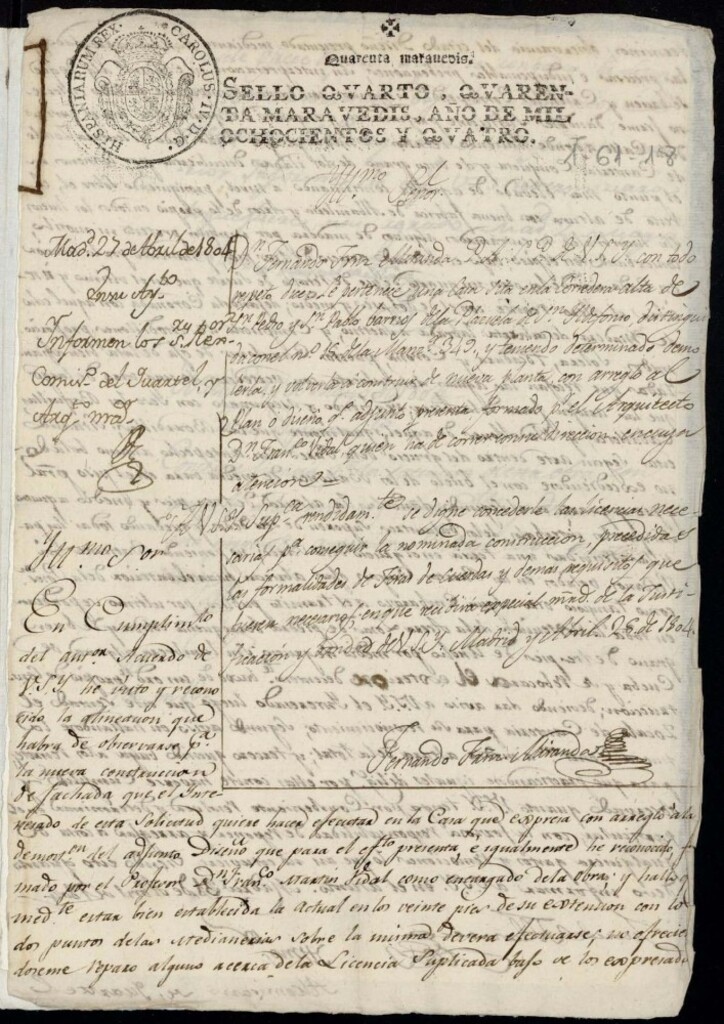 HISPANIARUM REX. CAROLUS. IV. D. G.
Quarenta maravedis.
SELLO QVARTO, QVAREN-
TA MARAVEDIS, AÑO DE MIL
OCHOCIENTOS Y QVATRO.
1-61-18
Yllmo Señor
Madd. 27 de Abril de 1804
Informen los Sres
Comiso. del Quartel, y
Arqto. mayr.
Dn. Fernando Miranda con todo
respeto dice: le pertenece una Casa sita en la Corredera alta de
Sn. Pablo barrio de la de Sn. Yldefonso distingui
da con el no. de la Manza. 349, y teniendo determinado demo
lerla, y volverla a construir de nueva planta, con arreglo al
Plan o diseño qe. adjunto presenta formado pr. el Arquitecto
Dn. Franco. Vidal, quien ha de correr con su direccion
atencion
A V.S.Y. Suppca. rendidamte. se digne concederle las licencias nece
sarias pa. conseguir la nominada construccion, precedidas
las formalidades de Tiras de Cuerdas y demas requisitos que
fueren necesarios, en que recibira especial mrd. de la Justi-
ficacion y bondad de V.S.Y. Madrid y Abril 26 de 1804.
Fernando Miranda
Yllmo. Sor.
En Cumplimto.
del anteor. Acuerdo de
V.S.Y he visto y recono
cido la alineacion que
habra de observarse pa.
la nueva construccion
de fachada que el Inte-
resado de esta Solicitud quiere hacer efectuar en la Casa que expresa con arreglo a la
demoson. del adjunto Diseño que para el efto. presenta e igualmente he reconocido, fir
mado por el Profesor Dn. Franco. Martin Vidal como encargado de la obra; y hallo
medte. estar bien establecida la actual en los veinte pies de su extension con los
dos puntos de las Medianerias sobre la misma devera efectuarse; no ofrecien
doseme reparo alguno acerca de la Licencia Suplicada bajo de los expresados